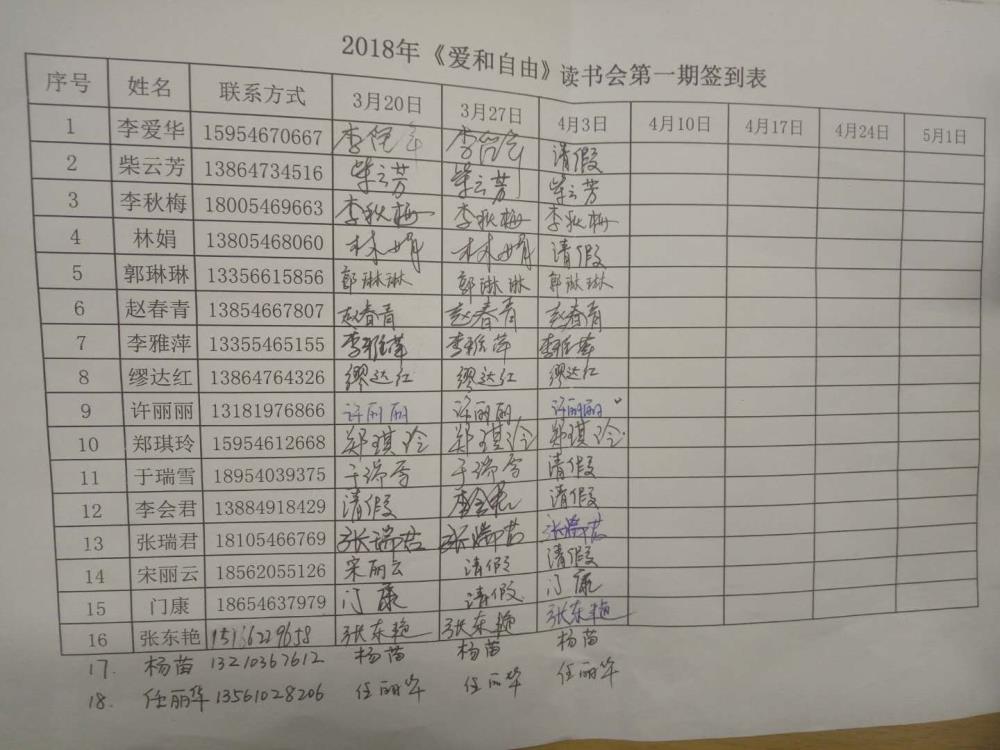 2018年《爱和自由》读书会第一期签到表
序号 姓名 联系方式 3月20日 3月27日 4月3日 4月10日 4月17日 4月24日 5月1日
1 李爱华 15954670667 请假
2 柴云芳 13864734516 柴云芳 柴云芳 柴云芳
3 李秋梅 18005469663 李秋梅 李秋梅 李秋梅
4 林娟 13805468060 林娟 林娟 请假
5 郭琳琳 13356615856 郭琳琳 郭琳琳 郭琳琳
6 赵春青 13854667807 赵春青 赵春青 赵春青
7 李雅萍 13355465155 李雅萍 李雅萍 李雅萍
8 缪达红 13864764326 缪达红 缪达红 缪达红
9 许丽丽 13181976866 许丽丽 许丽丽 许丽丽
10 郑琪玲 15954612668 郑琪玲 郑琪玲 郑琪玲
11 于瑞雪 18954039375 于瑞雪 于瑞雪 请假
12 李会君 13884918429 请假 李会君 请假
13 张瑞君 18105466769 张瑞君 张瑞君 张瑞君
14 宋丽云 18562055126 宋丽云 请假 请假
15 门康 18654637979 门康 请假 门康
16 张东艳 张东艳 张东艳 张东艳
17. 杨苗 13210367612 杨苗 杨苗 杨苗
18. 任丽华 13561028206 任丽华 任丽华 任丽华